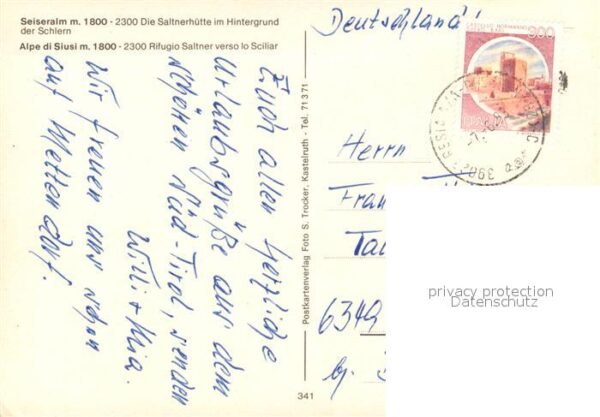 Seiseralm m. 1800 - 2300 Die Saltnerhütte im Hintergrund
der Schlern
Alpe di Siusi m. 1800 - 2300 Rifugio Saltner verso lo Sciliar
Euch allen herzliche
Urlaubsgrüße aus dem
schönen Süd-Tirol, senden
Willi + Mia.
Wir freuen uns schon
auf Mettendorf.
Postkartenverlag Foto S. Trocker, Kastelruth - Tel. 71371
341
Deutschland!
Herrn
6349
privacy protection
Datenschutz